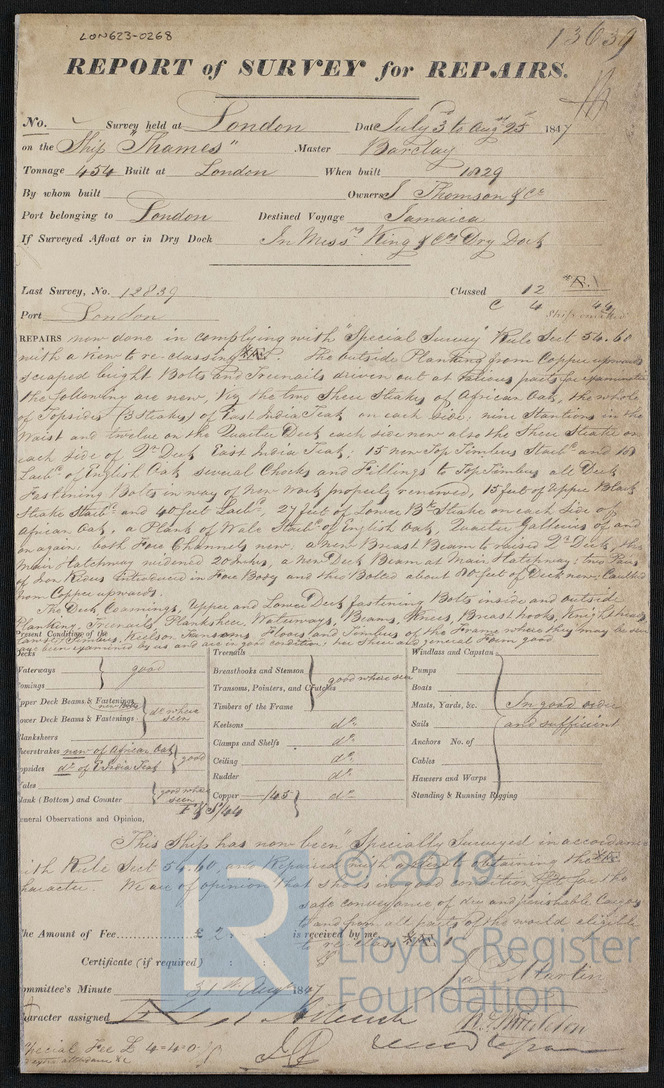 LON623-0268
13639
REPORT of SURVEY for REPAIRS.
No. Survey held at London Date July 3 to Augst 25 1847
on the Ship "Thames" Master Barclay
Tonnage 454 Built at London When built 1829
By whom built Owners J Thomson & Co
Port belonging to London Destined Voyage Jamaica
If Surveyed Afloat or in Dry Dock In Messrs King & Cos Dry Dock
Last Survey, No. 12839 Classed 12
Port London
REPAIRS now done in complying with "Special Survey" Rule Sect 54.60
with a view to re-classing. The outside Planking from Copper upwards
scraped bright Bolts and Treenails driven out at various parts for examination
the following are new, Viz the two Sheer Strakes of African Oak, the whole
of Topsides (3 Strakes) of East India Teak on each side. nine Stantions in the
Waist and twelve on the Quarter Deck each side new also the Sheer Strake on
each side of Qr Deck East India Teak; 15 new Top Timbers Starbd and 18
Larbd of English Oak several Chocks and Fillings to Top Timbers all Deck
Fastening Bolts in way of new work properly renewed, 15 feet of Upper Black
Strake Starbd and 40 feet Larbd, 27 feet of Lower Blk Strake on each side of
African Oak, a Plank of Wale Starbd of English Oak, Quarter Galleries off and
on again. both Fore Channels new. a new Breast Beam to raised Qr Deck, the
Main Hatchway widened 20 inches, a new Deck Beam at Main Hatchway; two Pairs
of Iron Riders introduced in Fore Body and thro Bolted about 80 feet of Deck new; Caulked
from Copper upwards.
The Deck Coamings, Upper and Lower Deck fastening Bolts inside and outside
Planking, Treenails, Plankshear, Waterways, Beams, Knees, Breasthooks, Knightheads
Timbers, Keelson, Transoms, Floors and Timbers of the Frame where they may be seen
have been examined by us and are in good condition, her Sheer and general Form good
Present Condition of the
Decks
Waterways good
Comings
Upper Deck Beams & Fastenings
Lower Deck Beams & Fastenings do where seen
Planksheers
Sheerstrakes new of African Oak
Topsides do of E India Teak good
Wales
Plank (Bottom) and Counter good where seen
Treenails
Breasthooks and Stemson
Transoms, Pointers, and Crutches good where seen
Timbers of the Frame
Keelsons do
Clamps and Shelfs do
Ceiling do
Rudder do
Copper /45 do
Windlass and Capstan
Pumps
Boats
Masts, Yards, &c. In good order
Sails and sufficient
Anchors No. of
Cables
Hawsers and Warps
Standing & Running Rigging
General Observations and Opinion,
This Ship has now been "Specially Surveyed in accordance
with Rule Sect 54.60, and Repaired with a view to obtaining the
character. We are of opinion that she is in good condition for the
safe conveyance of dry and perishable Cargoes
to and from all parts of the world eligible
The Amount of Fee £ 2 is received by me,
Certificate (if required)
Committee's Minute 31st Augt 1847
Character assigned
Special Fee £ 4=4=0
© 2019
LR
Lloyd's Register
Foundation